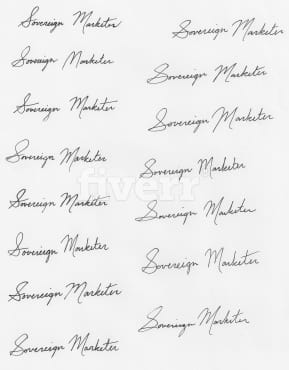 Sovereign Marketer
Sovereign Marketer
Sovereign Marketer
Sovereign Marketer
Sovereign Marketer
Sovereign Marketer
Sovereign Marketer
Sovereign Marketer
Sovereign Marketer
Sovereign Marketer
Sovereign Marketer
Sovereign Marketer
Sovereign Marketer
Sovereign Marketer
Sovereign Marketer
fiverr